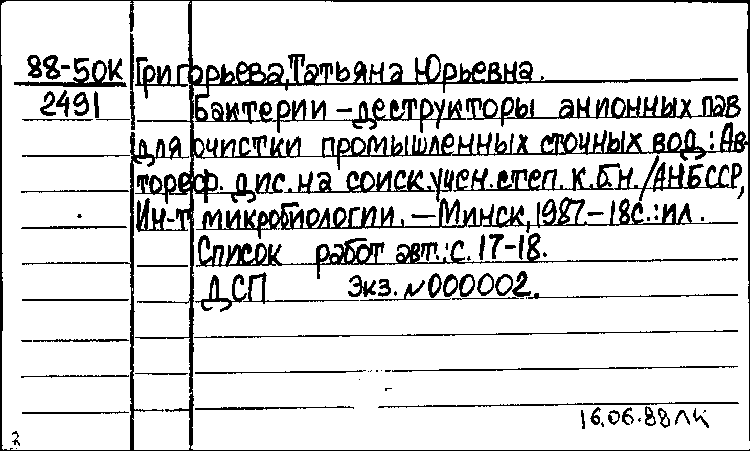 88-50К Григорьева, Татьяна Юрьевна.
2491 Бактерии – деструкторы анионных пав
для очистки промышленных сточных вод : Ав-
тореф. дис. на соиск. учен. степ. к.б.н. / АН БССР,
Ин-т микробиологии. – Минск, 1987. – 18с. : ил.
Список работ авт.: с. 17-18.
ДСП Экз. № 000002.
16.06.88 ЛК